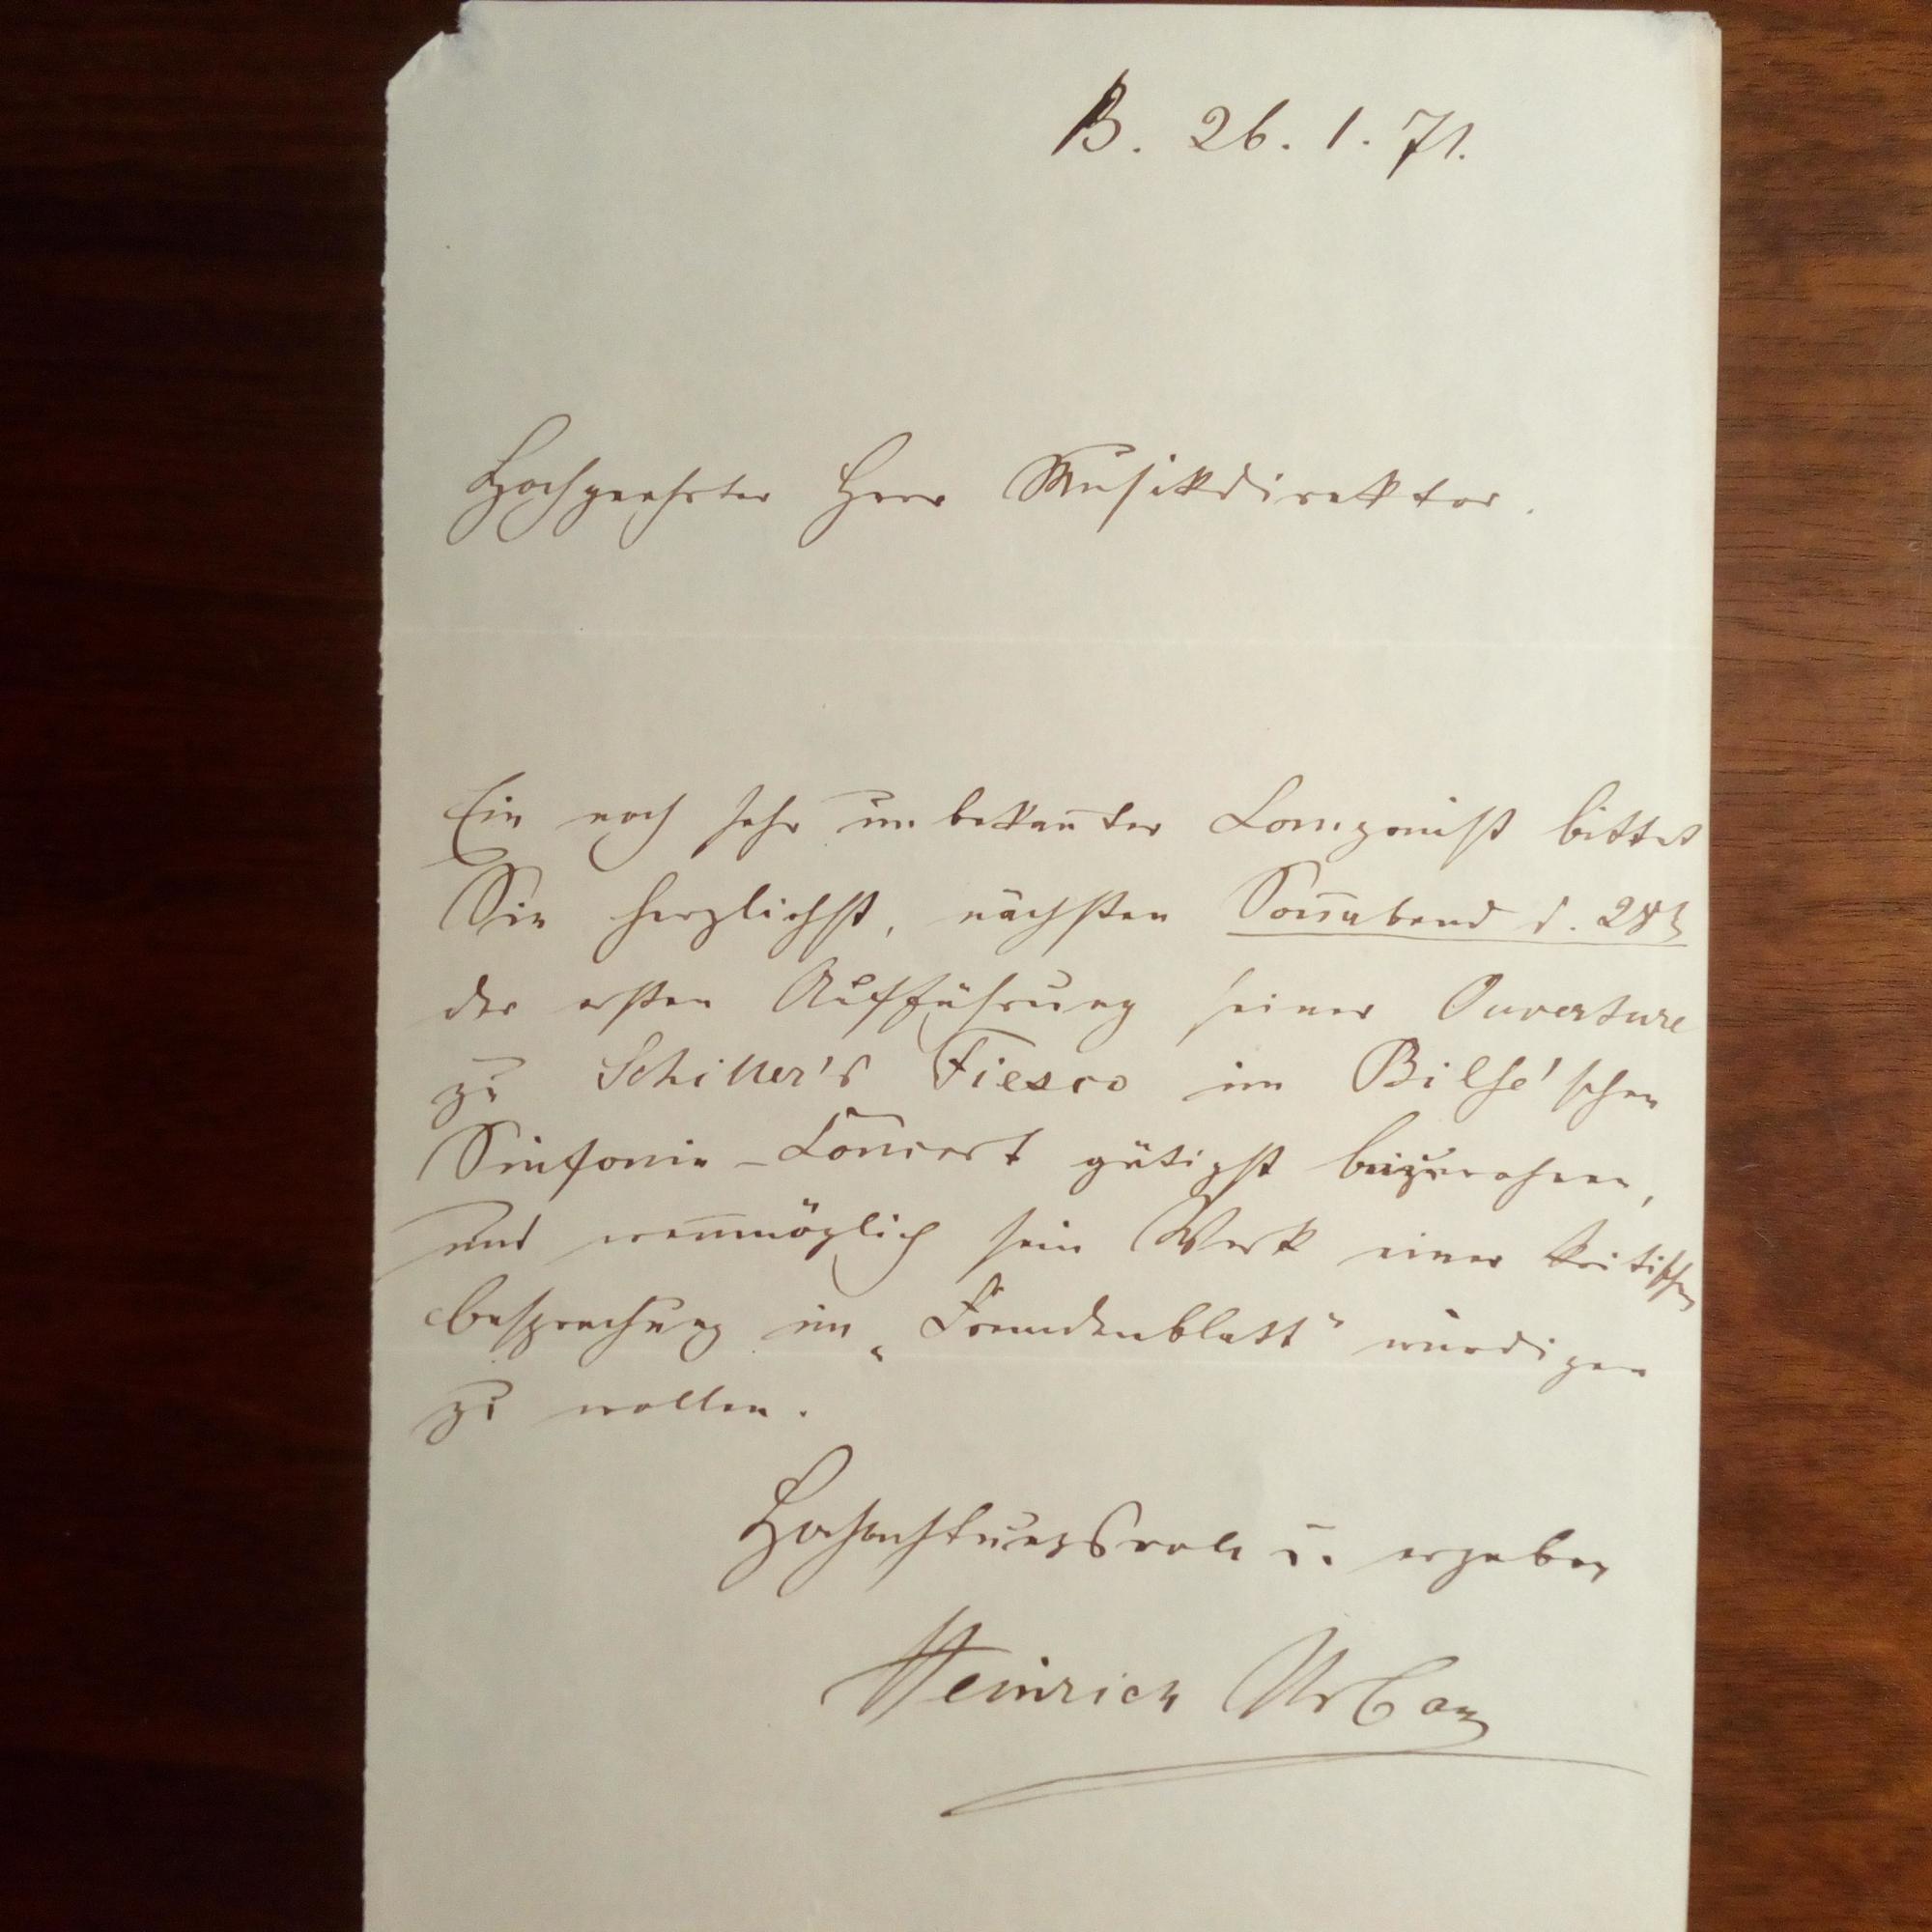 B. 26. 1. 71.
Hochgeehrter Herr Musikdirektor.
Ein noch sehr unbekan̄ter Componist bittet
Sie herzlichst, nächsten Son̄abend d. 28t
der ersten Aufführung seiner Ouverture
zu Schiller's Fiesco im Bilse'schen
Sinfonie-Concert gütigst beizuwohnen,
und wen̄möglich sein Werk einer kritischen
besprechung im „Fremdenblatt" würdigen
zu wollen.
Hochachtungsvoll u. ergeben
Heinrich Urban